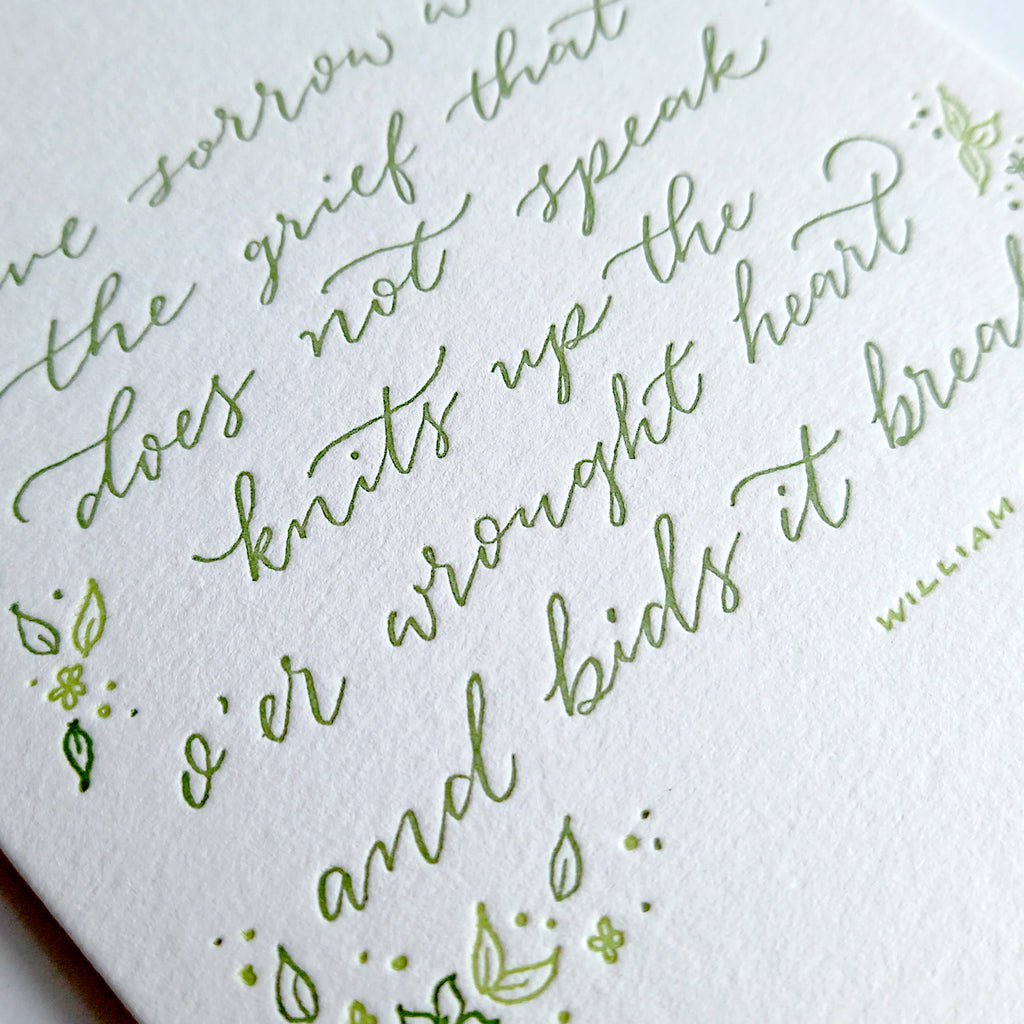 ve sorrow w
the grief that
does not speak
knits up the
o'er wrought heart
and bids it break
WILLIAM